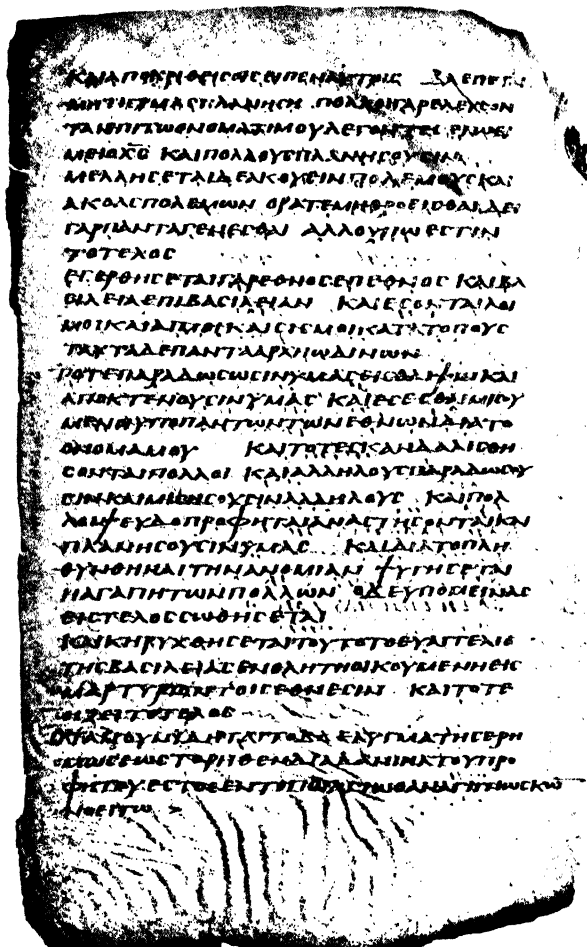 ΚΑΙΑΠΟΚΡΙΘΕΙϹΟ ΕΙΠΕΝΑΥΤΟΙϹ ΒΛΕΠΕΤΕ
ΜΗΤΙϹΥΜΑϹΠΛΑΝΗϹΗ ΠΟΛΛΟΙΓΑΡΕΛΕΥϹΟΝ
ΤΑΙΕΠΙΤΩΟΝΟΜΑΤΙΜΟΥΛΕΓΟΝΤΕϹ ΕΓΩΕΙ
ΜΕΙΟΧ̅Ϲ̅ ΚΑΙΠΟΛΛΟΥϹΠΛΑΝΗϹΟΥϹΙΝ
ΜΕΛΛΗϹΕΤΑΙΔΕΑΚΟΥΕΙΝΠΟΛΕΜΟΥϹΚΑΙ
ΑΚΟΑϹΠΟΛΕΜΩΝ ΟΡΑΤΕΜΗΘΡΟΕΙϹΘΑΙΔΕΙ
ΓΑΡΠΑΝΤΑΓΕΝΕϹΘΑΙ ΑΛΛΟΥΠΩΕϹΤΙΝ
ΤΟΤΕΛΟϹ
ΕΓΕΡΘΗϹΕΤΑΙΓΑΡΕΘΝΟϹΕΠΕΘΝΟϹ ΚΑΙΒΑ
ϹΙΛΕΙΑΕΠΙΒΑϹΙΛΕΙΑΝ ΚΑΙΕϹΟΝΤΑΙΛΟΙ
ΜΟΙΚΑΙ ΚΑΙϹΙϹΜΟΙΚΑΤΑΤΟΠΟΥϹ
ΤΑΥΤΑΔΕΠΑΝΤΑΑΡΧΗΩΔΙΝΩΝ
ΤΟΤΕΠΑΡΑΔΩϹΩϹΙΝΥΜΑϹΕΙϹΘΛΙΨΙΝΚΑΙ
ΑΠΟΚΤΕΝΟΥϹΙΝΥΜΑϹ ΚΑΙΕϹΕϹΘΑΙΜΙϹΟΥ
ΜΕΝΟΙΥΠΟΠΑΝΤΩΝΤΩΝΕΘΝΩΝΔΙΑΤΟ
ΟΝΟΜΑΜΟΥ ΚΑΙΤΟΤΕϹΚΑΝΔΑΛΙϹΘΗ
ϹΟΝΤΑΙΠΟΛΛΟΙ ΚΑΙΑΛΛΗΛΟΥϹΠΑΡΑΔΩϹΟΥ
ϹΙΝΚΑΙΜΙϹΗϹΟΥϹΙΝΑΛΛΗΛΟΥϹ ΚΑΙΠΟΛ
ΛΟΙΨΕΥΔΟΠΡΟΦΗΤΑΙΑΝΑϹΤΗϹΟΝΤΑΙΚΑΙ
ΠΛΑΝΗϹΟΥϹΙΝΥΜΑϹ ΚΑΙΔΙΑΤΟΠΛΗ
ΘΥΝΘΗΝΑΙΤΗΝΑΝΟΜΙΑΝ ΨΥΓΗϹΕΤΑΙ
ΗΑΓΑΠΗΤΩΝΠΟΛΛΩΝ ΟΔΕΥΠΟΜΕΙΝΑϹ
ΕΙϹΤΕΛΟϹϹΩΘΗϹΕΤΑΙ
ΚΑΙΚΗΡΥΧΘΗϹΕΤΑΙΤΟΥΤΟΤΟΕΥΑΓΓΕΛΙΟ
ΤΗϹΒΑϹΙΛΕΙΑϹΕΝΟΛΗΤΗΟΙΚΟΥΜΕΝΗΕΙϹ
ΜΑΡΤΥΡΙΟΝΤΟΙϹΕΘΝΕϹΙΝ ΚΑΙΤΟΤΕ
ΗΞΕΙΤΟΤΕΛΟϹ
ΟΤΑΝΟΥΝΙΔΗΤΑΙΤΟΒΔΕΛΥΓΜΑΤΗϹΕΡΗ
ΜΩϹΕΩϹΤΟΡΗΘΕΝΔΙΑΔΑΝΙΗΛΤΟΥΠΡΟ
ΦΗΤΟΥ ΕϹΤΟϹΕΝΤΟΠΩΑΓΙΩΟΑΝΑΓΙΝΩϹΚΩ
ΝΟΕΙΤΩ